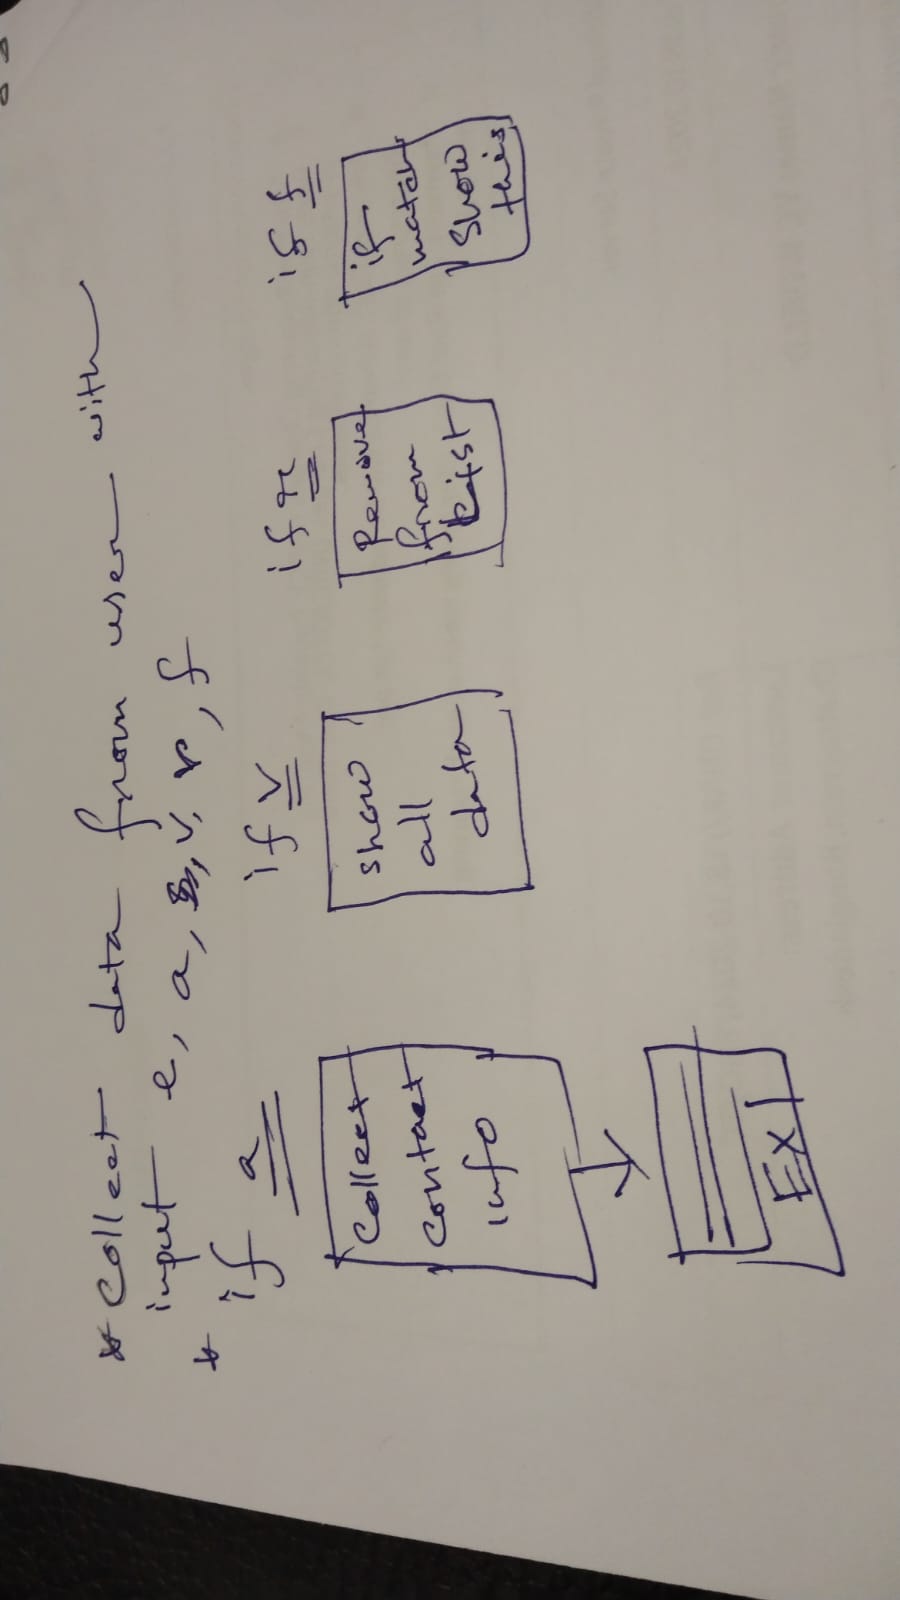 * Collect data from user with
input e, a, v, r, f
* if a
if v
if r
if f
Collect
contact
info
show
all
data
Remove
from
List
if
match
Show
this